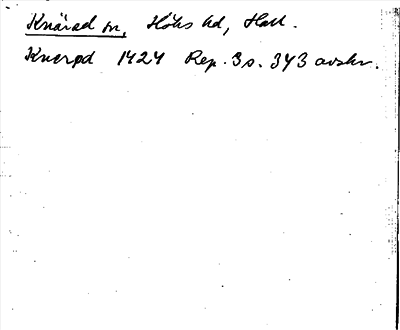 Knäred sn, Höks hd, Hall.
Knerød 1424 Rep. 3 s. 343 avskr.